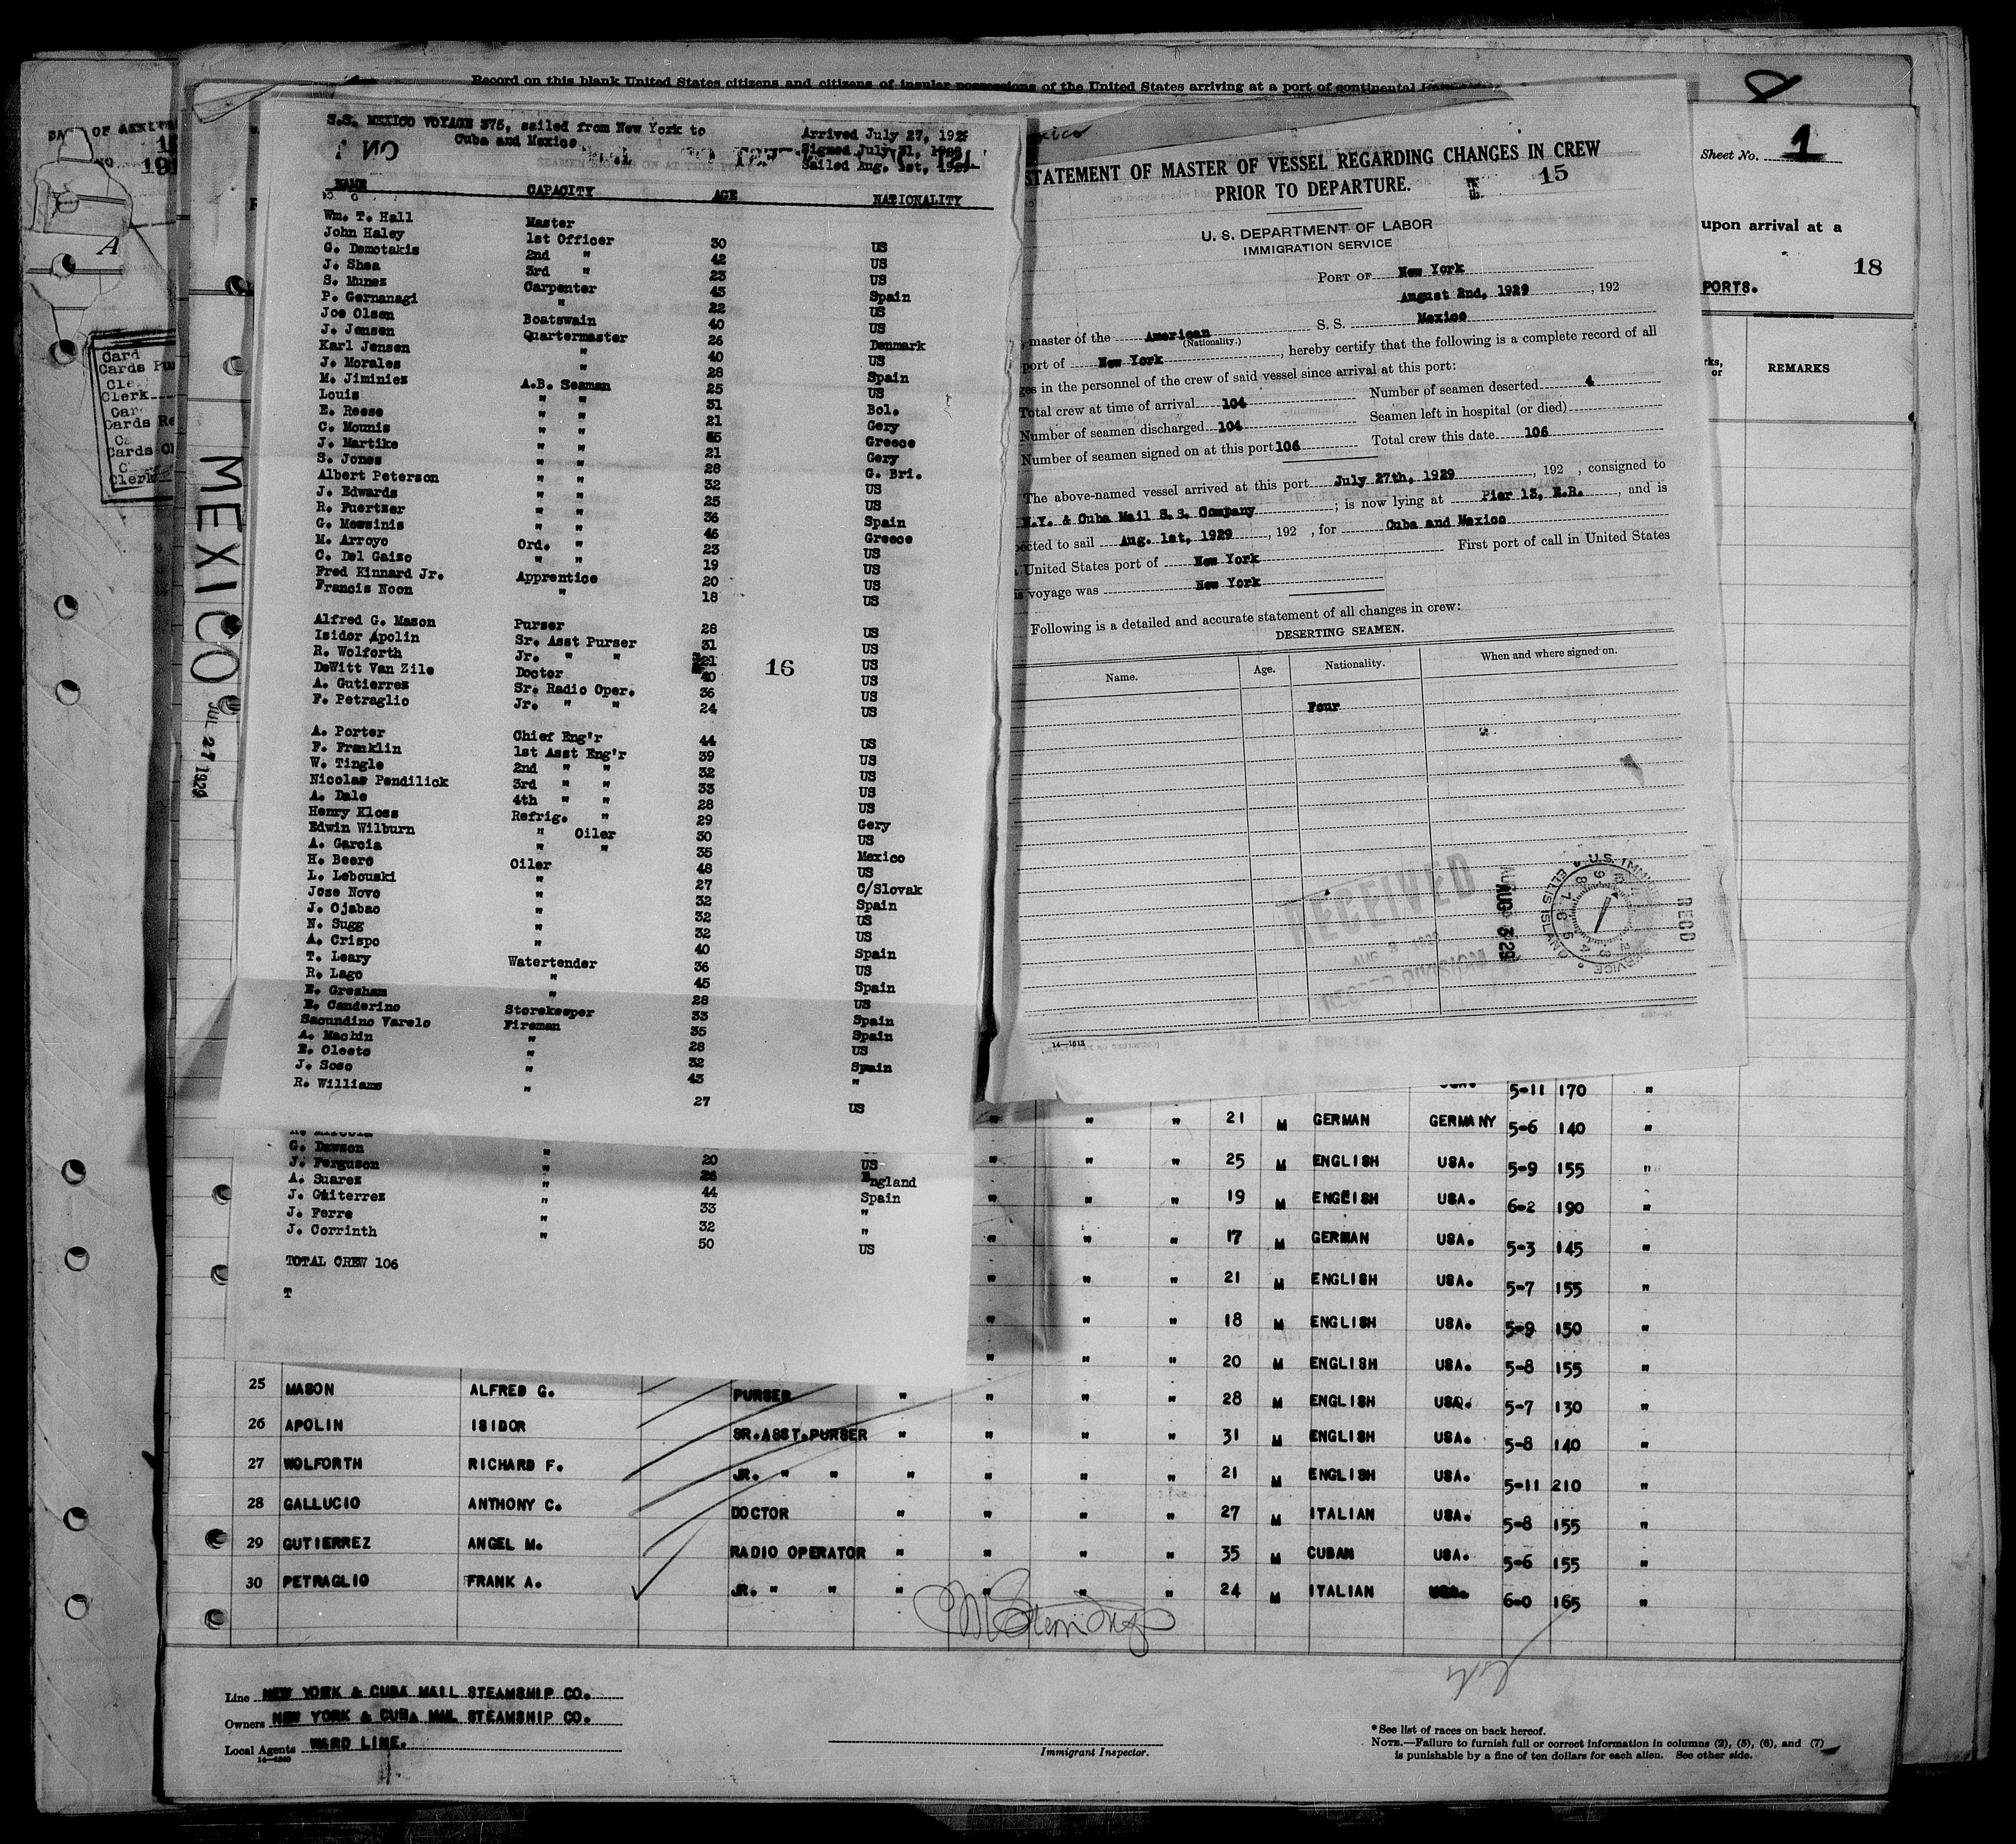 Record on this blank United States citizens and citizens of insular possessions of the United States arriving at a port of continental
S.S. MEXICO VOYAGE 375, sailed from New York to
Cuba and Mexico
Arrived July 27, 192
Signed July 31, 1929
Sailed Aug. 1st, 1929
NAME CAPACITY AGE NATIONALITY
Wm. T. Hall Master
John Haley 1st Officer 30 US
G. Demotakis 2nd " 42 US
J. Shea 3rd " 23 US
S. Munez Carpenter 43 Spain
P. Gernanagi " 22 US
Joe Olsen Boatswain 40 US
J. Jensen Quartermaster 26 Denmark
Karl Jensen " 40 US
J. Morales " 28 Spain
M. Jiminiez A.B. Seaman 25 US
Louis " " 31 Bol.
E. Reese " " 21 Gery
C. Mounis " " 25 Greece
J. Martike " " 21 Gery
S. Jones " " 28 G. Bri.
Albert Peterson " " 32 US
J. Edwards " " 25 US
R. Fuertzer " " 36 Spain
G. Messinis " " 46 Greece
M. Arroyo Ord. " 23 US
C. Del Gaizo " " 19 US
Fred Kinnard Jr. Apprentice 20 US
Francis Noon " 18 US
Alfred G. Mason Purser 28 US
Isidor Apolin Sr. Asst Purser 31 US
R. Wolforth Jr. " " 21 US
DeWitt Van Zile Doctor 40 US
A. Gutierrez Sr. Radio Oper. 36 US
F. Petraglio Jr. " " 24 US
16
A. Porter Chief Eng'r 44 US
F. Franklin 1st Asst Eng'r 39 US
W. Tingle 2nd " " 32 US
Nicolas Pendilick 3rd " " 33 US
A. Dale 4th " " 28 US
Henry Kloss Refrig. " 29 Gery
Edwin Wilburn " Oiler 30 US
A. Garcia " " 35 Mexico
H. Beero Oiler 48 US
L. Lebouski " 27 C/Slovak
Jose Novo " 32 Spain
J. Ojabao " 32 US
N. Sugg " 32 US
A. Crispo " 40 Spain
T. Leary Watertender 36 US
R. Lago " 45 Spain
E. Gresham " 28 US
E. Canderino Storekeeper 33 Spain
Sacundino Varelo Fireman 35 Spain
A. Machin " 28 US
E. Oleeto " 32 Spain
J. Soso " 43 "
R. Williams " 27 US
G. Dawson " 20 US
J. Ferguson " 26 England
A. Suarez " 44 Spain
J. Guiterrez " 33 "
J. Ferre " 32 "
J. Corrinth " 50 US
TOTAL CREW 106
T
STATEMENT OF MASTER OF VESSEL REGARDING CHANGES IN CREW
PRIOR TO DEPARTURE.
15
U. S. DEPARTMENT OF LABOR
IMMIGRATION SERVICE
PORT OF New York
August 2nd, 1929, 192
, master of the American S. S. Mexico
(Nationality.)
port of New York, hereby certify that the following is a complete record of all
ges in the personnel of the crew of said vessel since arrival at this port:
Total crew at time of arrival 104 Number of seamen deserted 4
Number of seamen discharged 104 Seamen left in hospital (or died)
Number of seamen signed on at this port 106 Total crew this date 106
The above-named vessel arrived at this port July 27th, 1929, 192 , consigned to
N.Y. & Cuba Mail S.S. Company; is now lying at Pier 13, E.R., and is
pected to sail Aug. 1st, 1929, 192 , for Cuba and Mexico
United States port of New York First port of call in United States
s voyage was New York
Following is a detailed and accurate statement of all changes in crew:
DESERTING SEAMEN.
Name. Age. Nationality. When and where signed on.
Four
RECEIVED
AUG 3 29
U.S. IMMIGRATION SERVICE ELLIS ISLAND
RECD
14—1613
Sheet No. 1
upon arrival at a
18
PORTS.
REMARKS
MEXICO JUL 27 1929
A
Card
Cards
Clerk
Cards Re
Cards
Clerk
5-11 170 "
" " " 21 M GERMAN GERMANY 5-6 140 "
" " " 25 M ENGLISH USA. 5-9 155 "
" " " 19 M ENGLISH USA. 6-2 190 "
" " " 17 M GERMAN USA. 5-3 145 "
" " " 21 M ENGLISH USA. 5-7 155 "
" " " 18 M ENGLISH USA. 5-9 150 "
" " " 20 M ENGLISH USA. 5-8 155 "
25 MASON ALFRED G. PURSER " " " " 28 M ENGLISH USA. 5-7 130 "
26 APOLIN ISIDOR SR.ASST.PURSER " " " " 31 M ENGLISH USA. 5-8 140 "
27 WOLFORTH RICHARD F. JR. " " " " " " 21 M ENGLISH USA. 5-11 210 "
28 GALLUCIO ANTHONY C. DOCTOR " " " " 27 M ITALIAN USA. 5-8 155 "
29 GUTIERREZ ANGEL M. RADIO OPERATOR " " " " 35 M CUBAN USA. 5-6 155 "
30 PETRAGLIO FRANK A. JR. " " " " " " 24 M ITALIAN USA. 6-0 165 "
Line NEW YORK & CUBA MAIL STEAMSHIP CO.
Owners NEW YORK & CUBA MAIL STEAMSHIP CO.
Local Agents WARD LINE.
14—1240
Immigrant Inspector.
*See list of races on back hereof.
NOTE.—Failure to furnish full or correct information in columns (2), (5), (6), and (7)
is punishable by a fine of ten dollars for each alien. See other side.